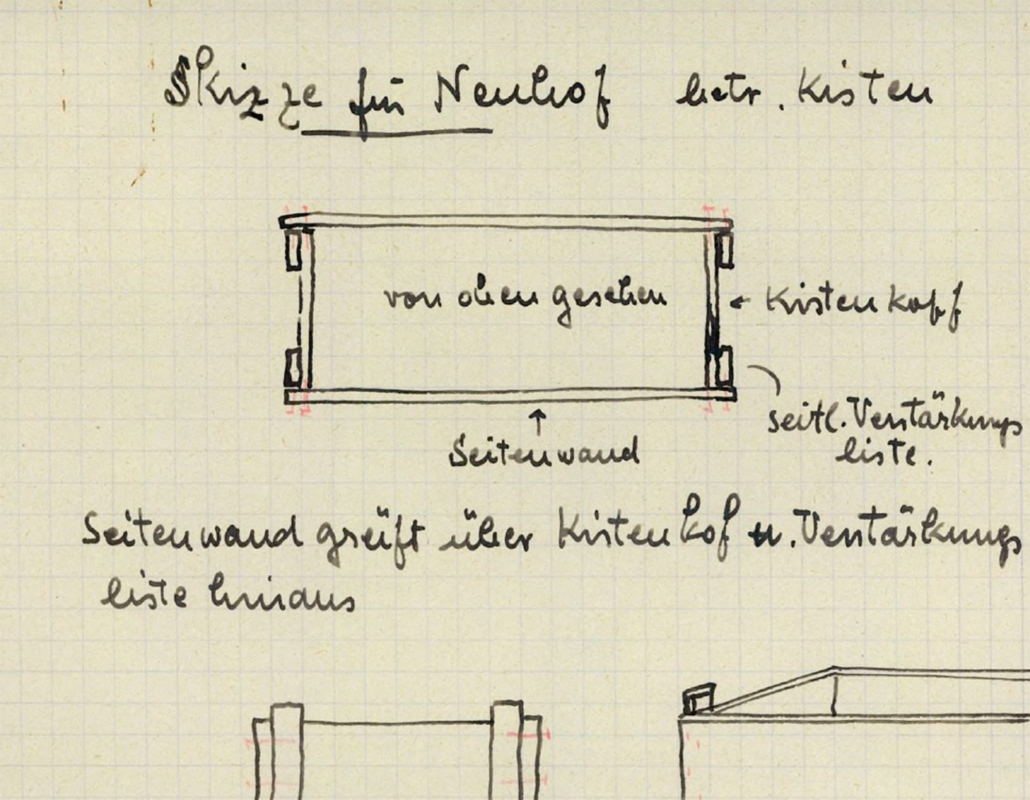 Skizze für Neuhof betr. Kisten
von oben gesehen
← Kistenkopf
seitl. Verstärkungs
liste.
↑
Seitenwand
Seitenwand greift über Kistenkof u. Verstärkungs
liste hinaus